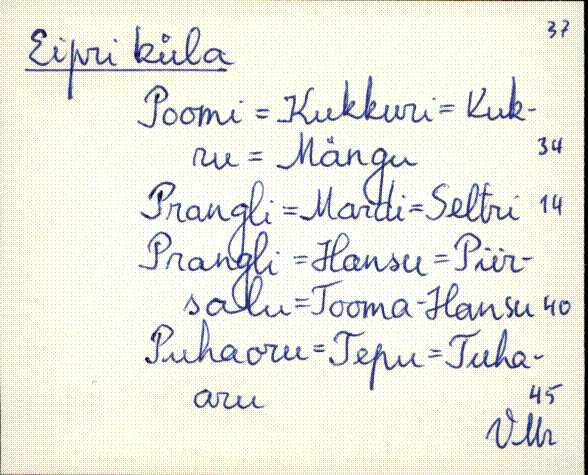 37
Eipri küla
Poomi = Kukkuri = Kuk-
ru = Mängu 34
Prangli = Mardi = Seltri 14
Prangli = Hansu = Piir-
salu = Tooma-Hansu 40
Puhaoru = Tepu = Tuha-
aru 45
VMr